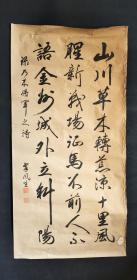 山川草木轉荒涼十里風
腥新戰場征馬不前人不
語金州城外立斜陽
錄乃木將軍之詩